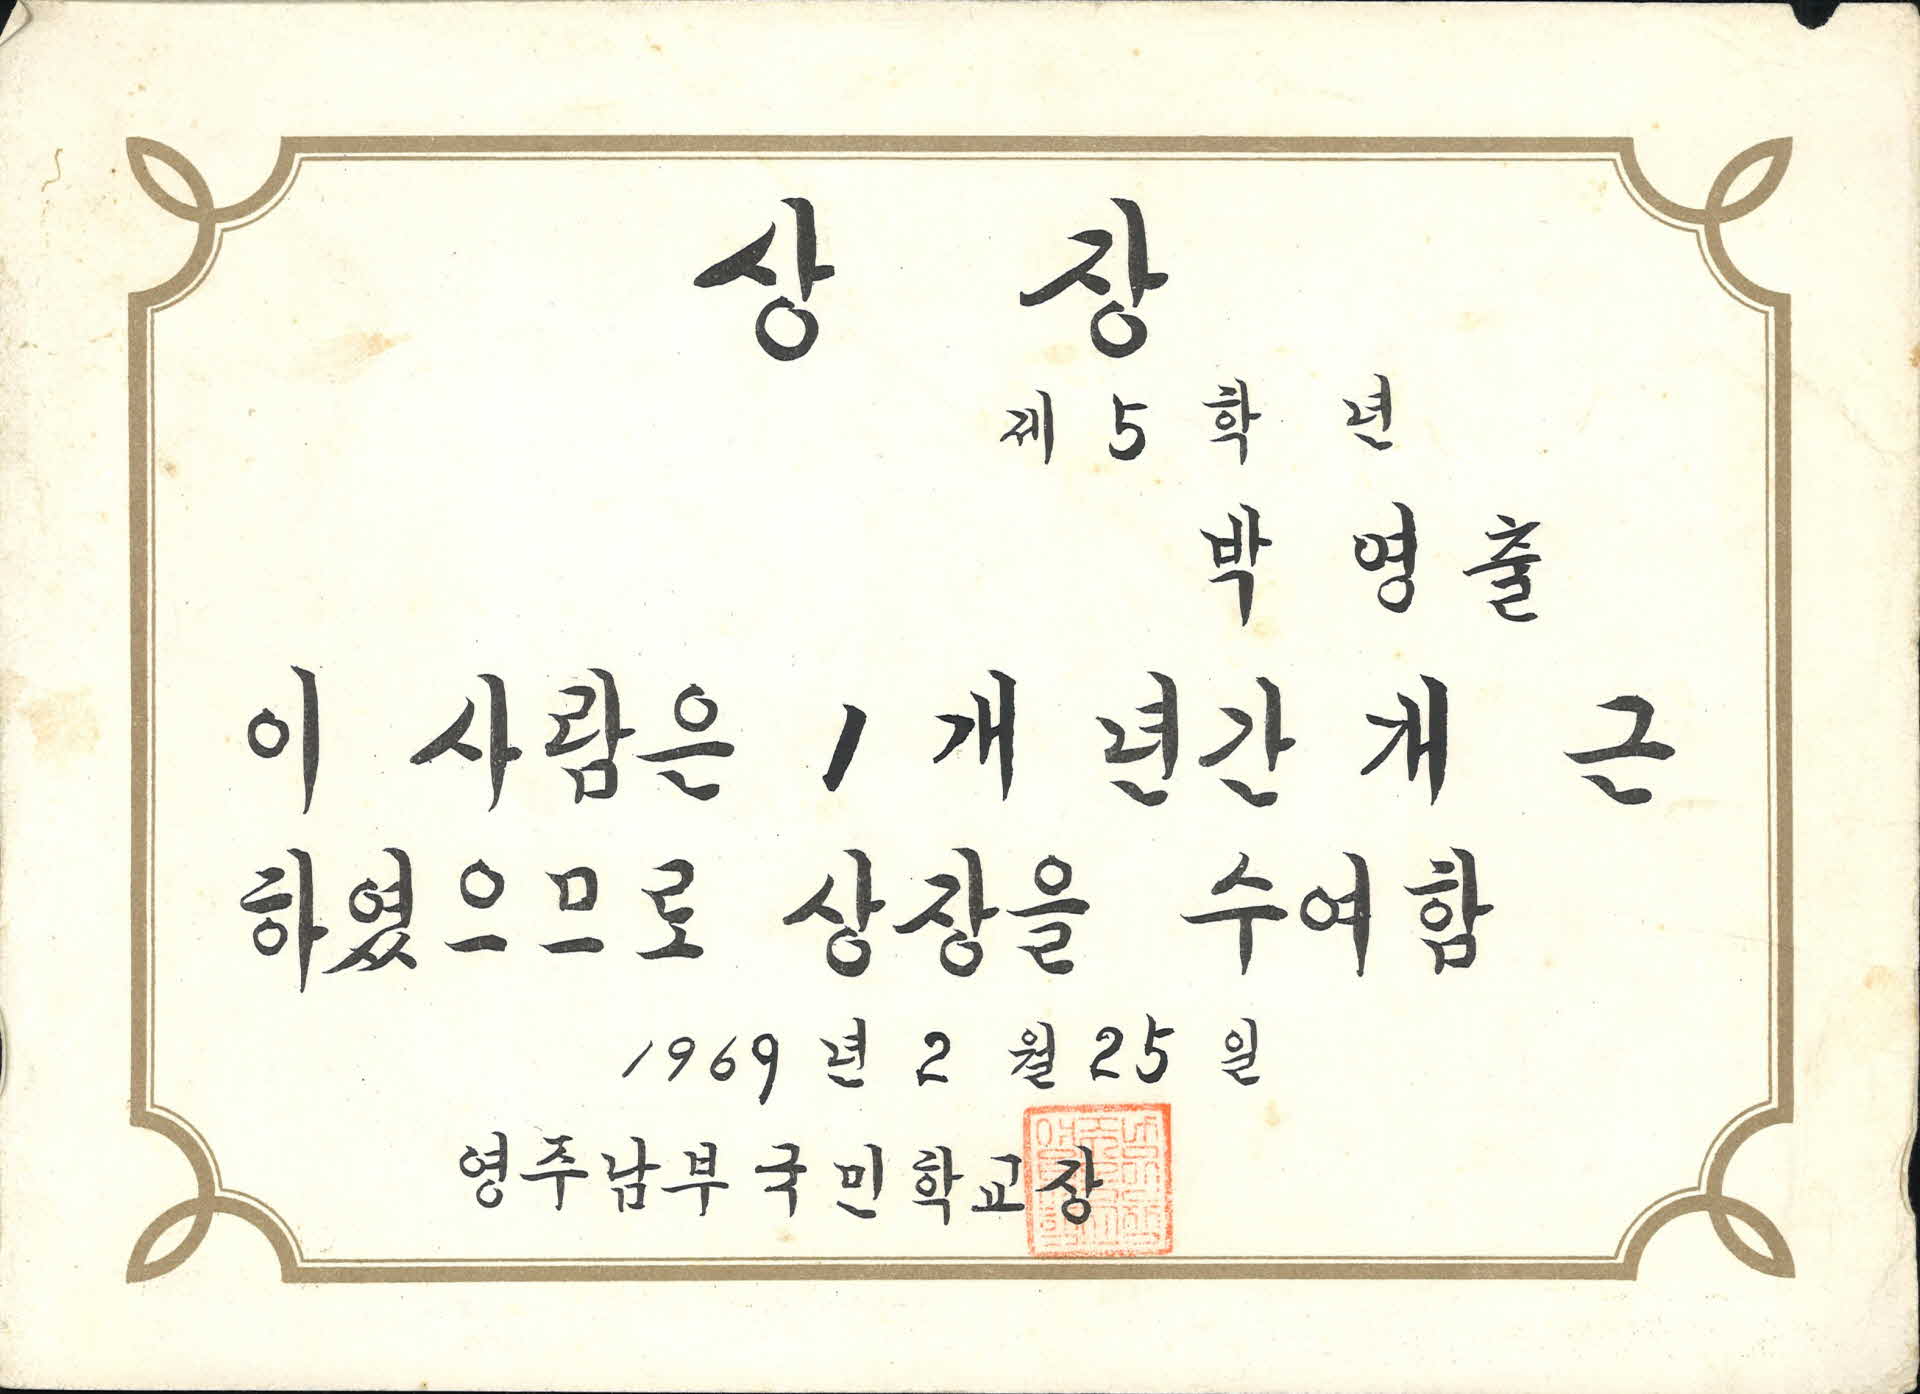 상 장
제 5 학 년
박 영 출
이 사람은 1 개 년간 개 근
하였으므로 상장을 수여함
1969 년 2 월 25 일
영주남부국민학교장